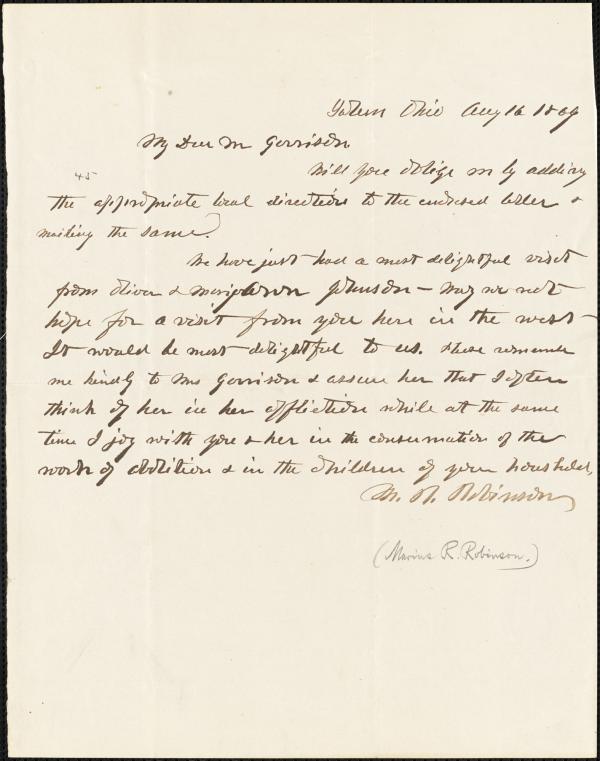 Salem Ohio Aug 16 1869
My Dear Mr Garrison
Will you oblige me by adding
45
the appropriate local direction to the enclosed letter &
mailing the same.
We have just had a most delightful visit
from Oliver & Mary Johnson – May we not
hope for a visit from you here in the west –
It would be most delightful to us. Please remember
me kindly to Mrs Garrison & assure her that I often
think of her in her affliction while at the same
time I joy with you & her in the consumation of the
work of abolition & in the children of your household,
M. R. Robinson
(Marius R. Robinson.)